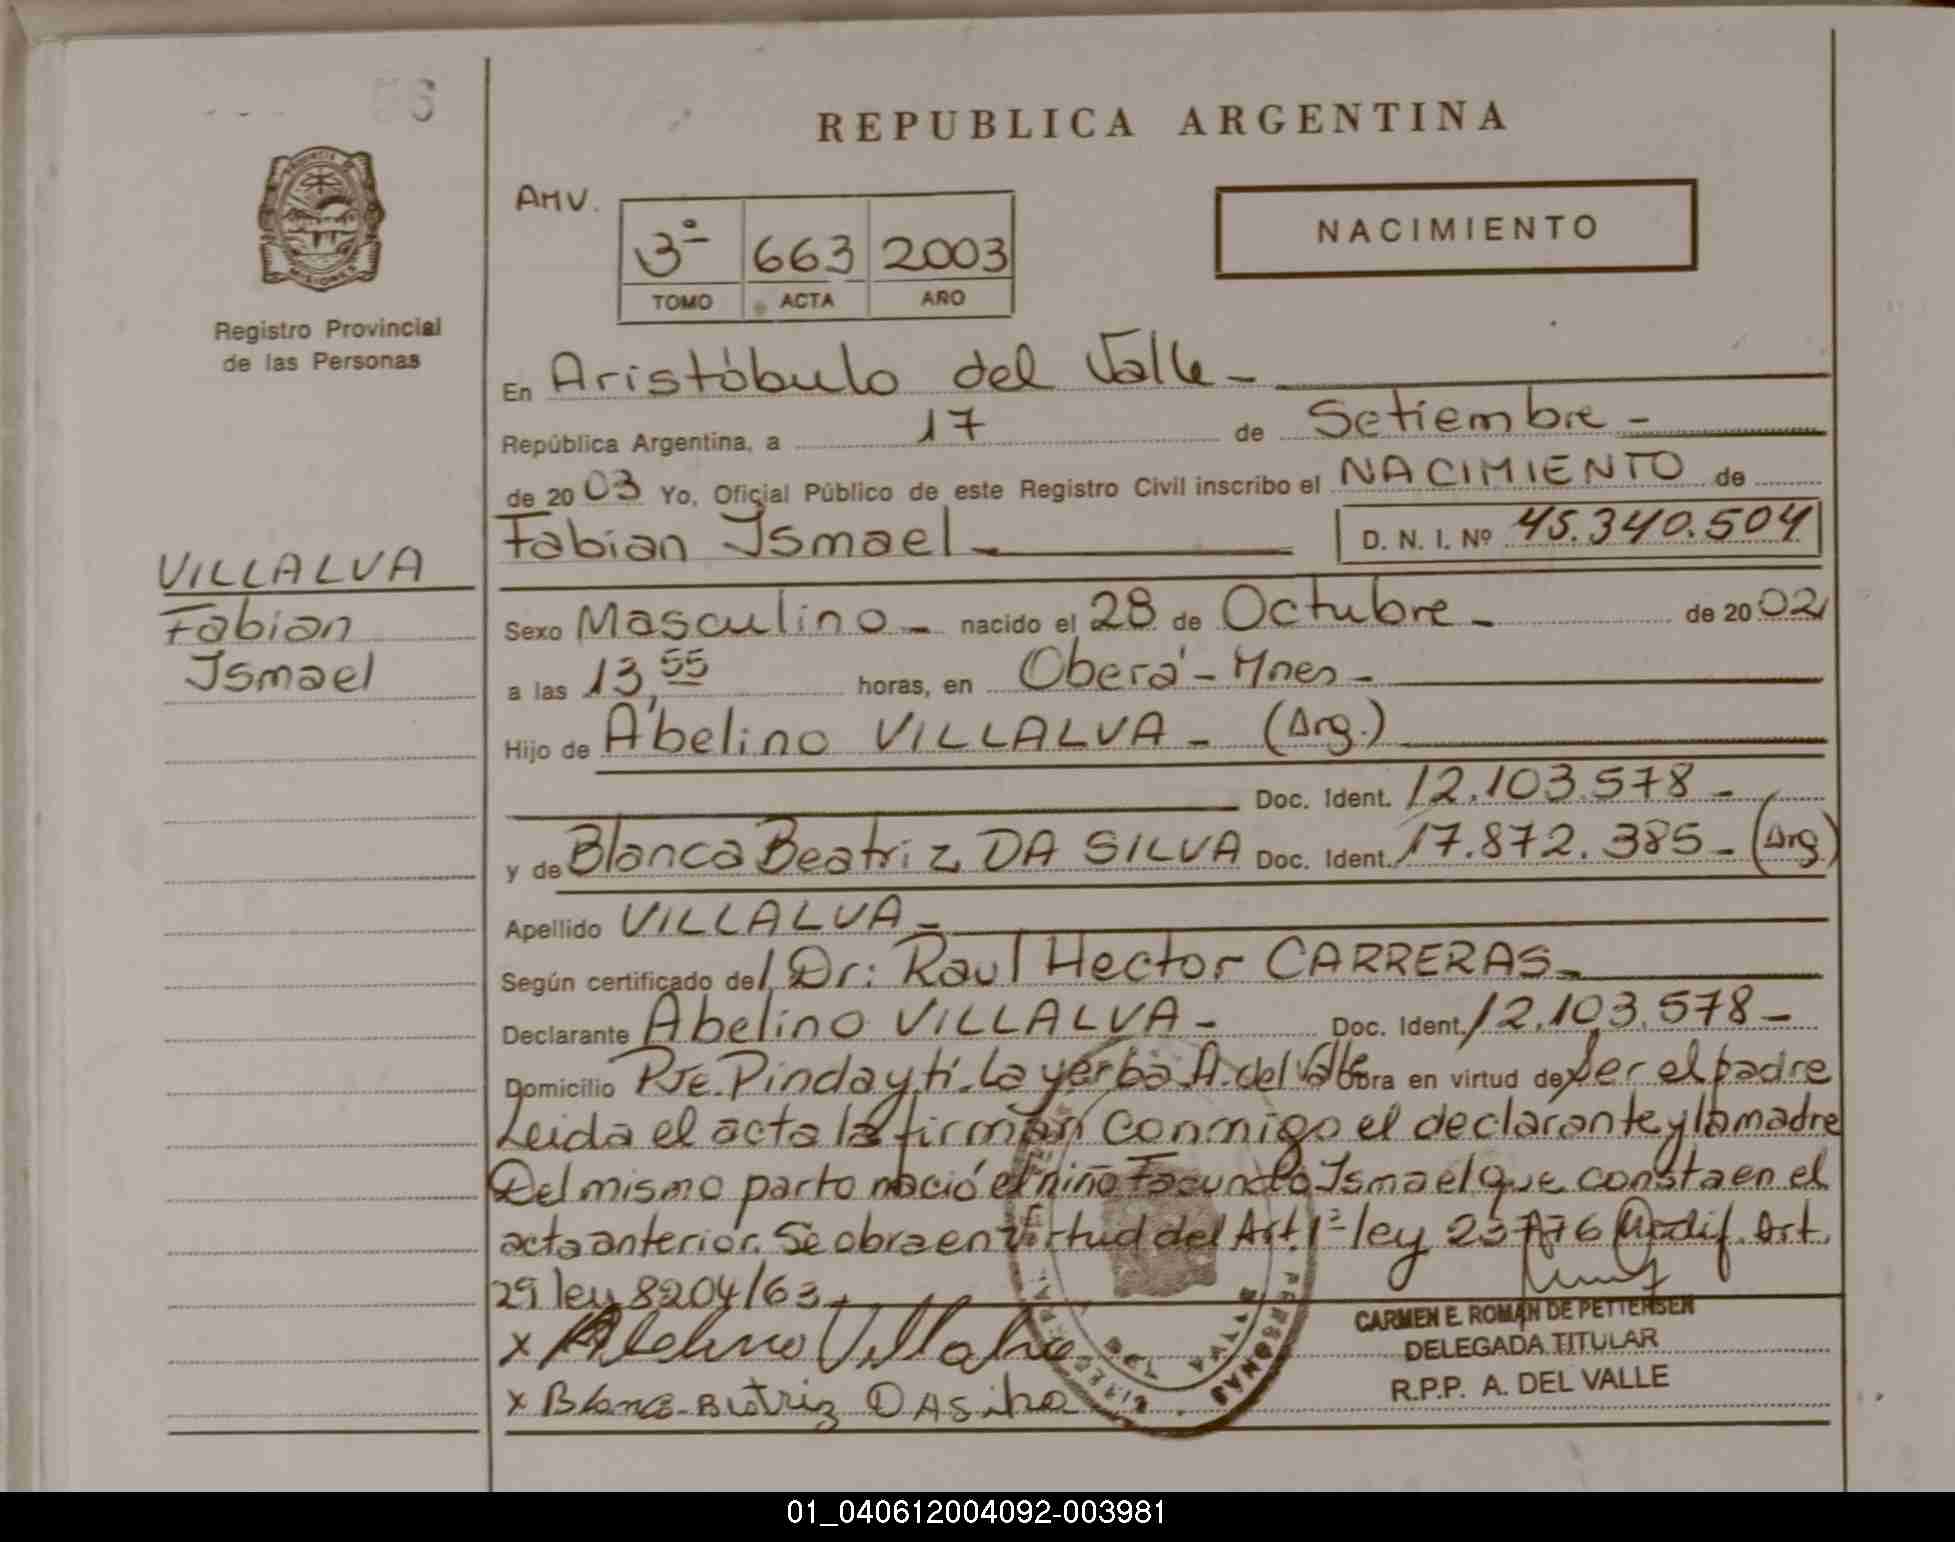 REPUBLICA ARGENTINA
PROVINCIA DE
MISIONES
Registro Provincial
de las Personas
AMV.
3º 663 2003
TOMO ACTA AÑO
NACIMIENTO
En Aristóbulo del Valle -
República Argentina, a 17 de Setiembre -
de 2003 Yo, Oficial Público de este Registro Civil inscribo el NACIMIENTO de
Fabian Ismael - D. N. I. Nº 45.340.504
VILLALVA
Fabian
Ismael
Sexo Masculino - nacido el 28 de Octubre - de 2002
a las 13,55 horas, en Oberá - Mnes -
Hijo de Abelino VILLALVA - (Arg.)
Doc. Ident. 12.103.578 -
y de Blanca Beatriz DA SILVA Doc. Ident. 17.872.385 - (Arg)
Apellido VILLALVA -
Según certificado del Dr: Raul Hector CARRERAS -
Declarante Abelino VILLALVA - Doc. Ident. 12.103.578 -
Domicilio Pje. Pindaytí. La yerba A. del Valle obra en virtud de Ser el padre
Leida el acta la firman conmigo el declarante y la madre
Del mismo parto nació el niño Facundo Ismael que consta en el
acta anterior. Se obra en virtud del Art. 1º ley 23776 Modif. Art.
29 ley 8204/63 -
x Abelino Villalva
x Blanca Beatriz DA Silva
CARMEN E. ROMAN DE PETTERSEN
DELEGADA TITULAR
R.P.P. A. DEL VALLE
PERSONAS
01_040612004092-003981